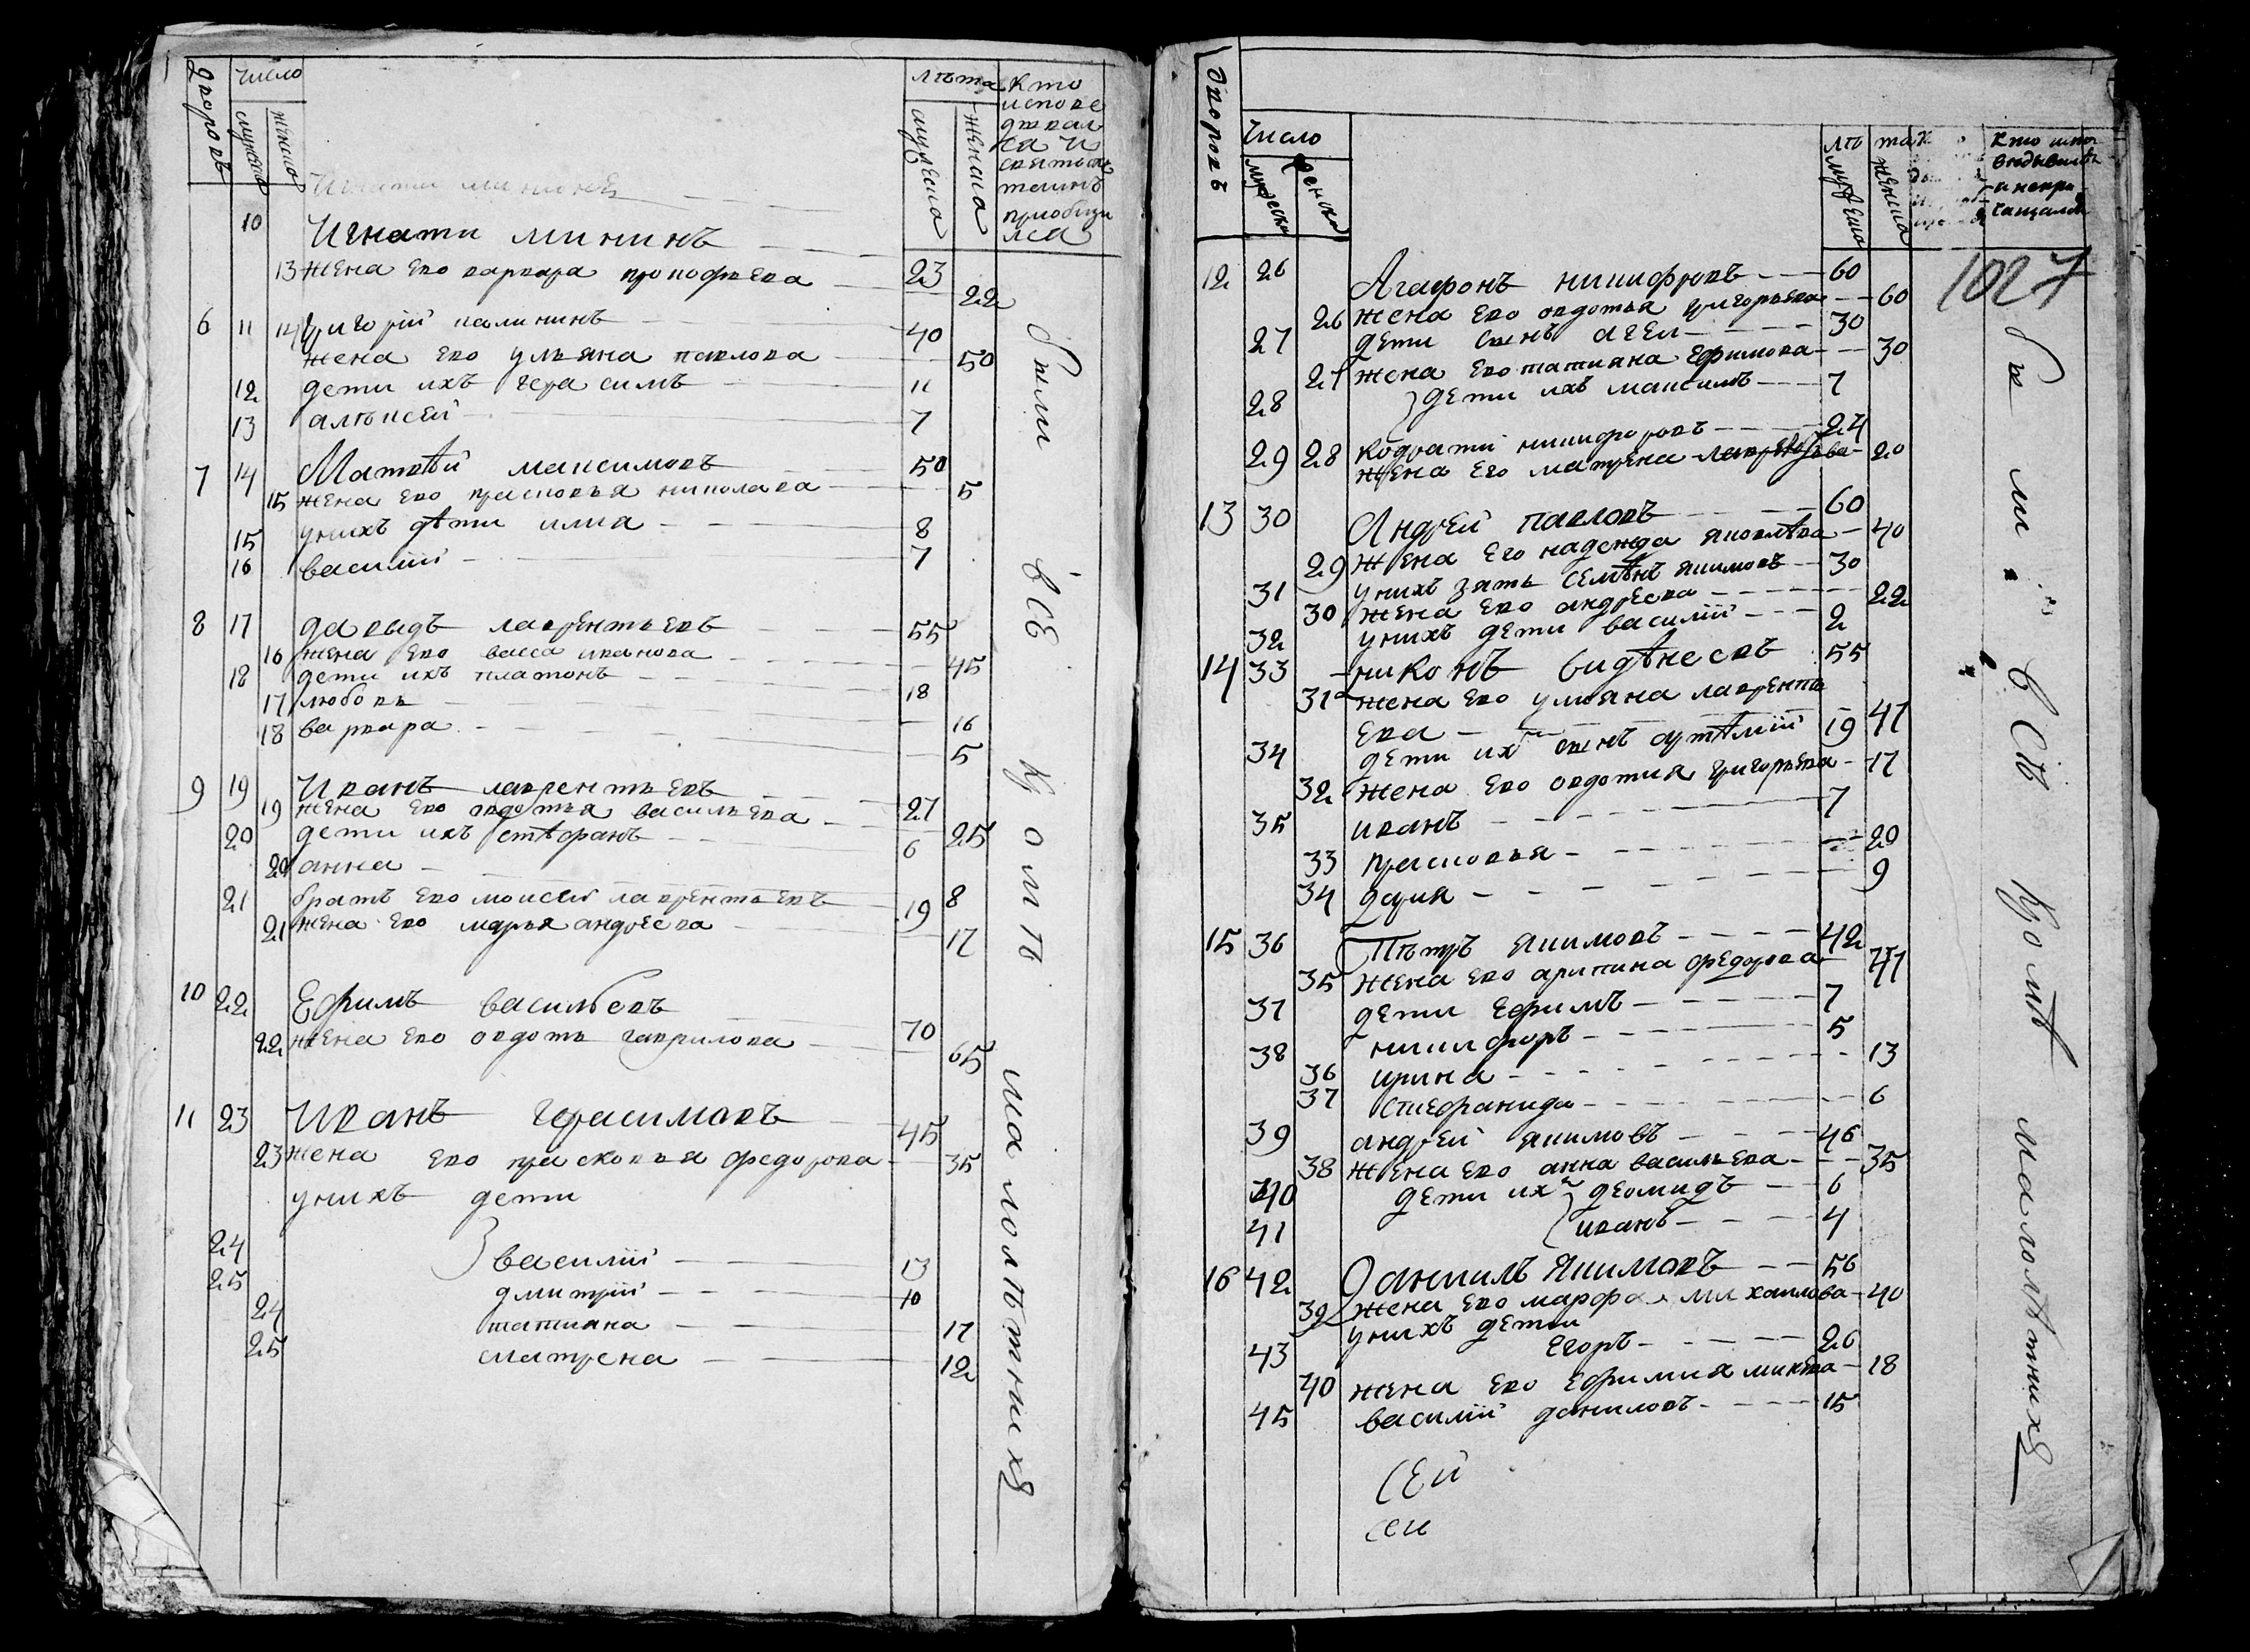 дворовъ число лѣта кто
мужеска женска мужеска женска испове
дывал
ся и
святыхъ
таинъ
приобщи
лся
Игнати мининъ
10 Игнати мининъ 23
13 жена ево варвара прокофьева 22
6 11 14 григорiй калининъ 40
жена ево ульяна павлова 50
12 дети ихъ герасимъ 11
13 алѣксей 7
7 14 Матвѣй максимовъ 50
15 жена ево прасковья николава 5
15 унихъ дѣти илиа 8
16 василiй 7
8 17 давыдъ лаврентьевъ 55
16 жена ево васса иванова 45
18 дети ихъ платонъ 18
17 любовь 16
18 варвара 5
9 19 Иванъ лаврентьевъ 27
19 жена ево овдотья васильева 25
20 дети ихъ стѣфанъ 6
20 анна 8
21 братъ ево моисей лаврентьевъ 19
21 жена ево марья андреева 17
10 22 Ефимъ васильевъ 70
22 жена ево овдоть гаврилова 65
11 23 Иванъ герасимовъ 45
23 жена ево прасковья федорова 35
унихъ дети
24 василiй 13
25 дмитрiй 10
24 татиана 17
25 матрена 12
были всѣ кромѣ малолѣтнихъ
дворовъ
число лѣта кто испо
мужеска женска мужеска женска ведывался
а непри
чащался
1027
12 26 Агафонъ никифровъ 60
26 жена ево овдотья григорьева 60
27 дети сынъ агеи 30
27 жена ево татиана ефимова 30
28 дети ихъ максимъ 7
29 кодрати никифоровъ 24
28 жена его матрена 20
13 30 Андрей павловъ 60
29 жена его надежда яковлѣва 40
31 унихъ зять семѣнъ якимовъ 30
30 жена ево андреева 22
32 унихъ дети василiй 2
14 33 никонъ видѣнеевъ 55
31 жена ево ульяна лавренть
ева 47
34 дети ихъ сынъ артѣмiй 19
32 жена ево овдотия григорьева 17
35 иванъ 7
33 прасковья 20
34 дария 9
15 36 Пѣтръ якимовъ 42
35 жена ево арипина федорова 41
37 дети ефимъ 7
38 никифоръ 5
36 ирина 13
37 стиефанида 6
39 андрей якимовъ 46
38 жена ево анна васильева 35
40 дети ихъ деомидъ 6
41 иванъ 4
16 42 Данилъ якимовъ 56
39 жена ево марфа михаилова 40
унихъ дети
43 егоръ 26
40 жена ево ефимия микева 18
45 василiй даниловъ 15
сей
сеи
были всѣ кромѣ малолѣтнихъ